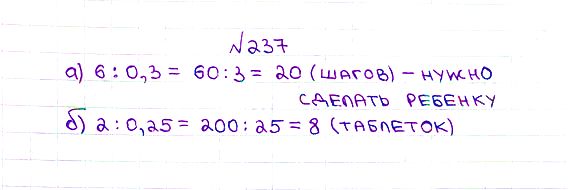 №237
а) 6 : 0,3 = 60 : 3 = 20 (шагов) – нужно
сделать ребенку
б) 2 : 0,25 = 200 : 25 = 8 (таблеток)